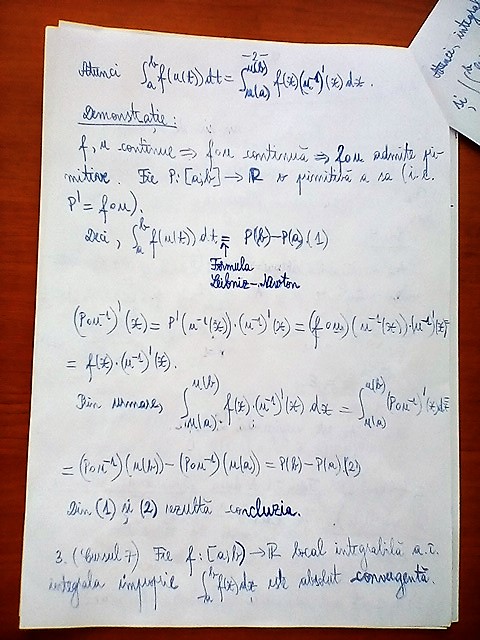 -2-
Atunci ∫_a^b f(u(t)) dt = ∫_{u(a)}^{u(b)} f(x)(u^{-1})'(x) dx.
Demonstrație:
f, u continue ⇒ f∘u continuă ⇒ f∘u admite pri-
mitive. Fie P: [a,b] → ℝ o primitivă a sa (i.e.
P' = f∘u).
Deci, ∫_a^b f(u(t)) dt = P(b)-P(a) (1)
↑
Formula
Leibniz-Newton
(P∘u^{-1})'(x) = P'(u^{-1}(x))·(u^{-1})'(x) = (f∘u)(u^{-1}(x))·(u^{-1})'(x)=
= f(x)·(u^{-1})'(x).
Prin urmare, ∫_{u(a)}^{u(b)} f(x)·(u^{-1})'(x) dx = ∫_{u(a)}^{u(b)} (P∘u^{-1})'(x)dx=
= (P∘u^{-1})(u(b)) - (P∘u^{-1})(u(a)) = P(b) - P(a). (2)
Din (1) și (2) rezultă concluzia.
3. (Cursul 7) Fie f: [a,b) → ℝ local integrabilă a.î.
integrala improprie ∫_a^b f(x)dx este absolut convergentă.
Atunci, integral
și